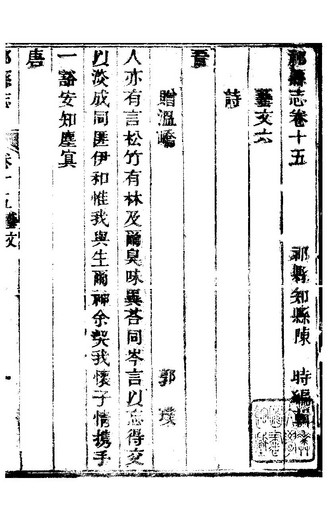 祁縣志卷十五
祁縣知縣陳 時編輯
藝文六
詩
晉
贈溫嶠 郭璞
人亦有言松竹有林及爾臭味異苔同岑言以忘得交
以淡成同匪伊和惟我與生爾神余契我懷子情携手
一豁安知塵寞
唐
祁縣志 卷十五藝文